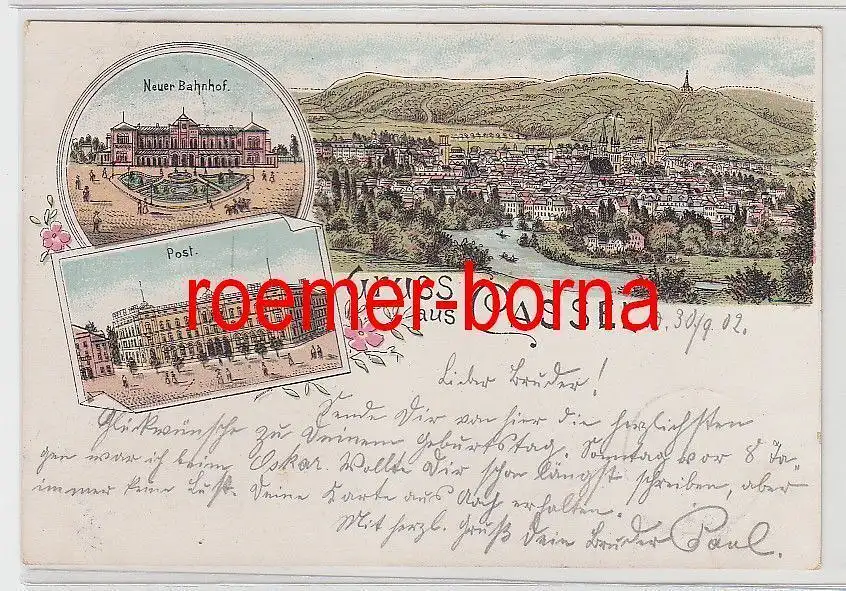 Neuer Bahnhof.
Post.
roemer-borna
Gruss
aus CASSEL
d. 30/9 02.
Lieber Bruder!
Sende Dir von hier die herzlichsten
Glückwünsche zu Deinem Geburtstag. Sonntag vor 8 Ta-
gen war ich beim Oskar. Wollte Dir schon längst schreiben, aber
immer keine Lust. Deine Karte aus erhalten.
Mit herzl. Gruß Dein Bruder Paul.